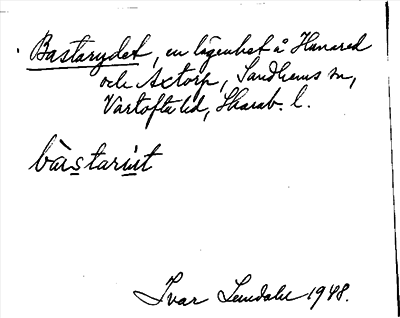 Bastarydet, en lägenhet å Hanared
och Axtorp, Sandhems sn,
Vartofta hd, Skarab. l.
bàstarut
Ivar Lundahl 1948.